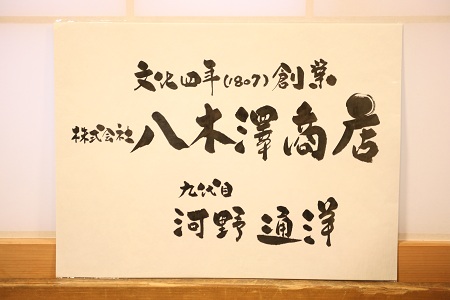 文化四年(1807)創業
株式会社八木澤商店
九代目
河野 通洋